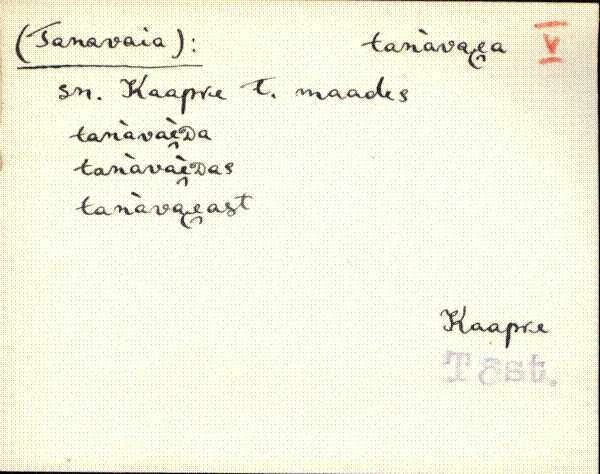 (Tanavaia): tanàvae̯a V
sn. Kaapre t. maades
tanàvaè̯Da
tanàvaè̯Das
tanàvae̯ast
Kaapre
Tõst.